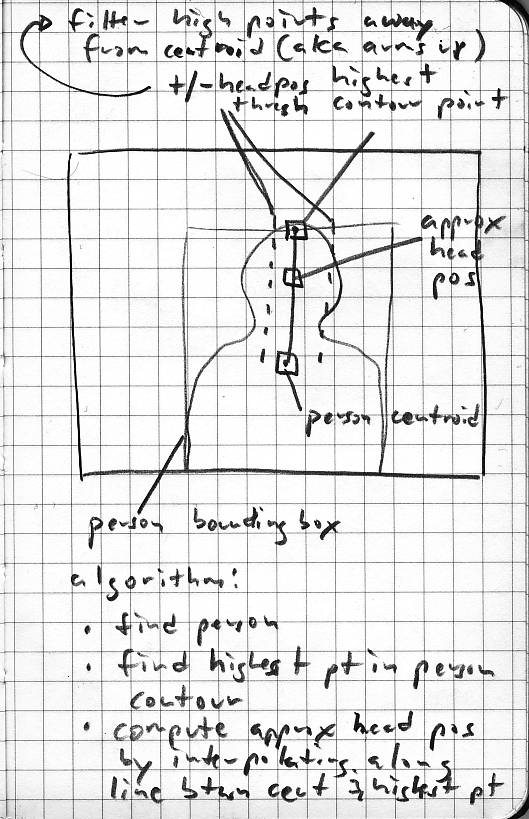 filter high points away
from centroid (aka arms up)
+/- headpos
thresh
highest
contour point
approx
head
pos
person centroid
person bounding box
algorithm:
• find person
• find highest pt in person
contour
• compute approx head pos
by interpolating along
line btwn cent & highest pt